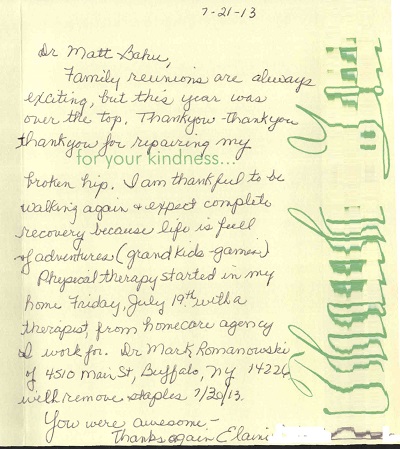 7-21-13
Dr Matt Bahu,
Family reunions are always
exciting, but this year was
over the top. Thankyou thankyou
thankyou for repairing my
for your kindness...
broken hip. I am thankful to be
walking again & expect complete
recovery because life is full
of adventures (grand kids games)
Physical therapy started in my
home Friday, July 19th with a
therapist, from homecare agency
I work for. Dr Mark Romanowski
of 4510 Main St, Buffalo, NY 14226
will remove staples 7/30/13.
You were awesome -
Thanks again Elaine
Thank
You